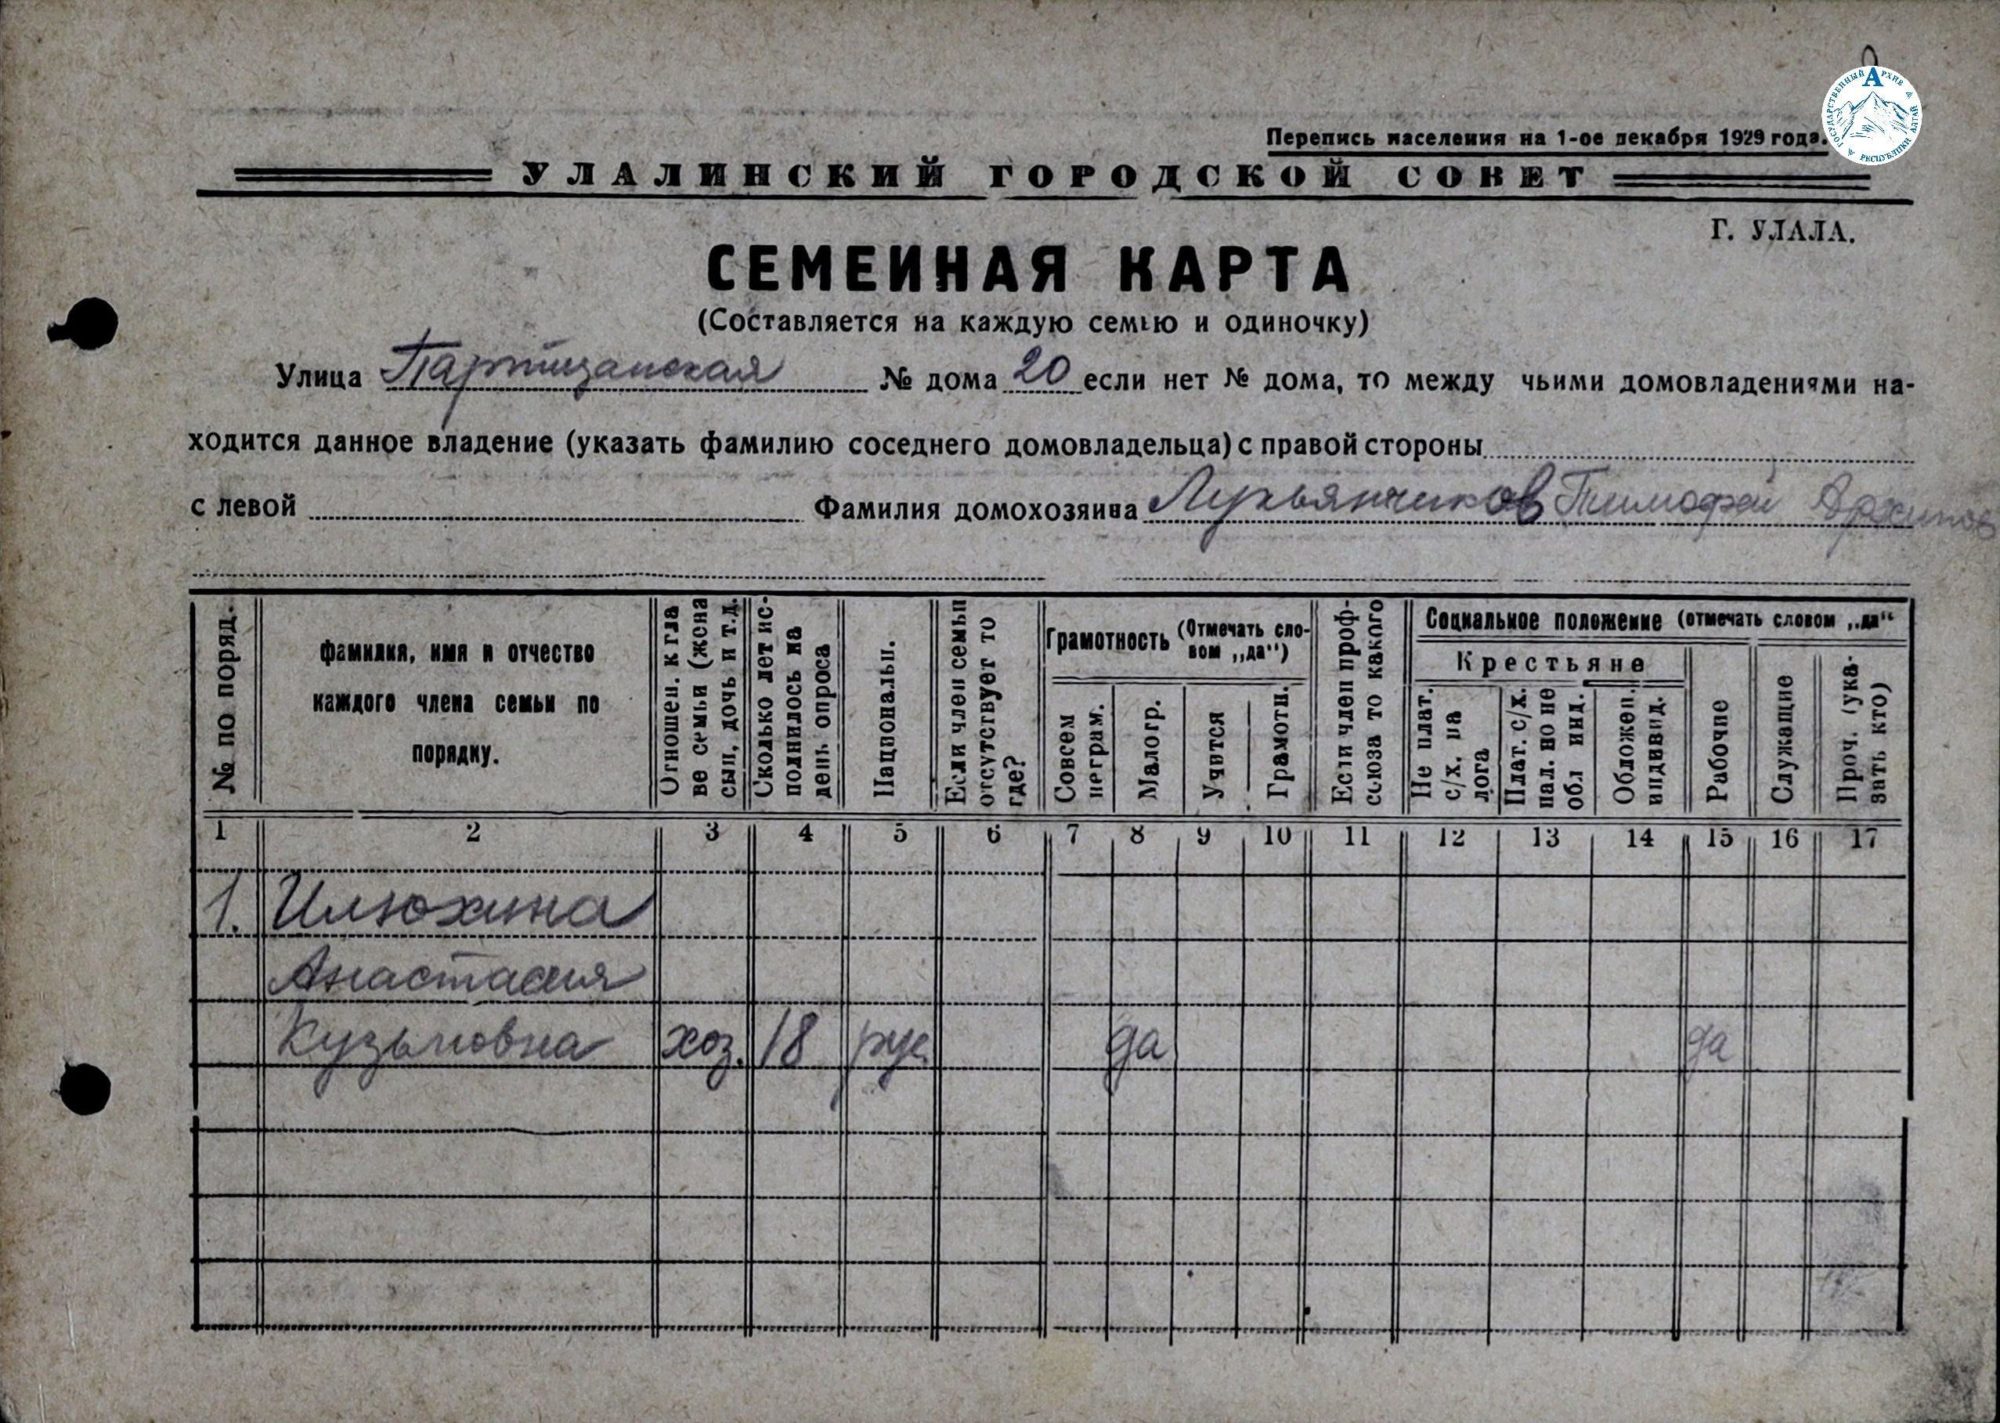 ГОСУДАРСТВЕННЫЙ АРХИВ РЕСПУБЛИКИ АЛТАЙ
Перепись населения на 1-ое декабря 1929 года.
УЛАЛИНСКИЙ ГОРОДСКОЙ СОВЕТ
Г. УЛАЛА.
СЕМЕЙНАЯ КАРТА
(Составляется на каждую семью и одиночку)
Улица Партизанская № дома 20 если нет № дома, то между чьими домовладениями на-
ходится данное владение (указать фамилию соседнего домовладельца) с правой стороны
с левой Фамилия домохозяина Лукьянчиков Тимофей Архипов
№ по поряд.
фамилия, имя и отчество
каждого члена семьи по
порядку.
Отношен. к гла
ве семьи (жена
сын, дочь и т.д.
Сколько лет ис-
полнилось на
день опроса
Национальн.
Если член семьи
отсутствует то
где?
Грамотность (Отмечать сло-
вом „да")
Совсем
неграм.
Малогр.
Учится
Грамотн.
Если член проф-
союза то какого
Социальное положение (отмечать словом „да"
Крестьяне
Не плат.
с/х. на
лога
Плат. с/х.
нал. но не
обл инд.
Обложен.
индивид.
Рабочие
Служащие
Проч. (ука-
зать кто)
1 2 3 4 5 6 7 8 9 10 11 12 13 14 15 16 17
1. Илюхина
Анастасия
Кузьмовна хоз. 18 рус. да да